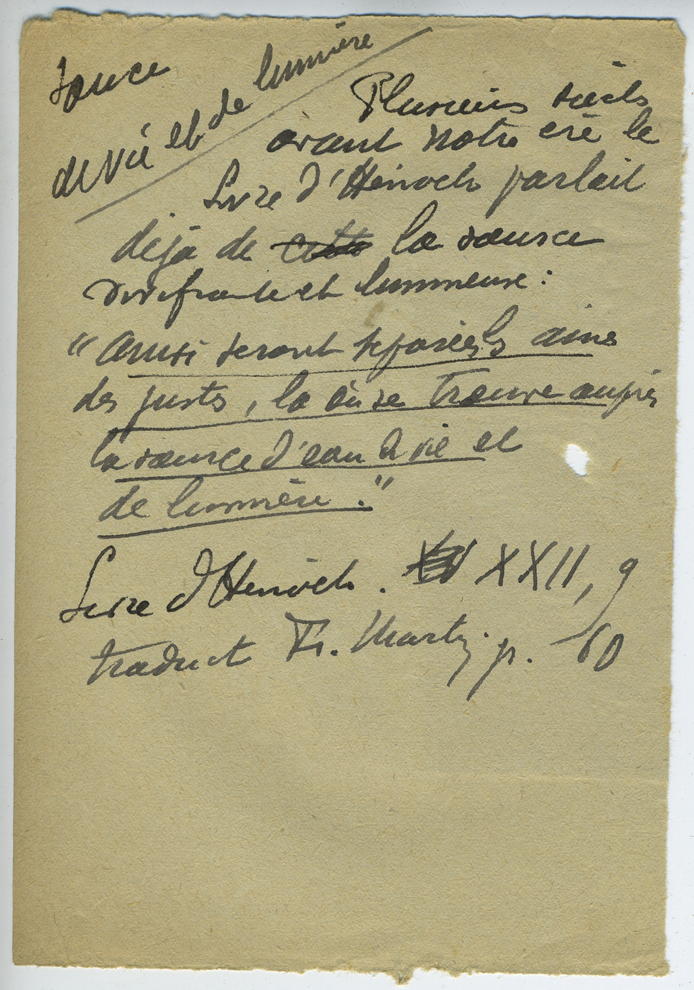 Source
de vie et de lumière
Plusieurs siècles
avant notre ère le
Livre d'Hénoch parlait
déjà de cette la source
vivifiante et lumineuse :
"Ainsi seront séparées les âmes
des justes, là où se trouve auprès
la source d'eau de vie et
de lumière."
Livre d'Hénoch. XXII, 9
traduct Fr. Martin p. 60